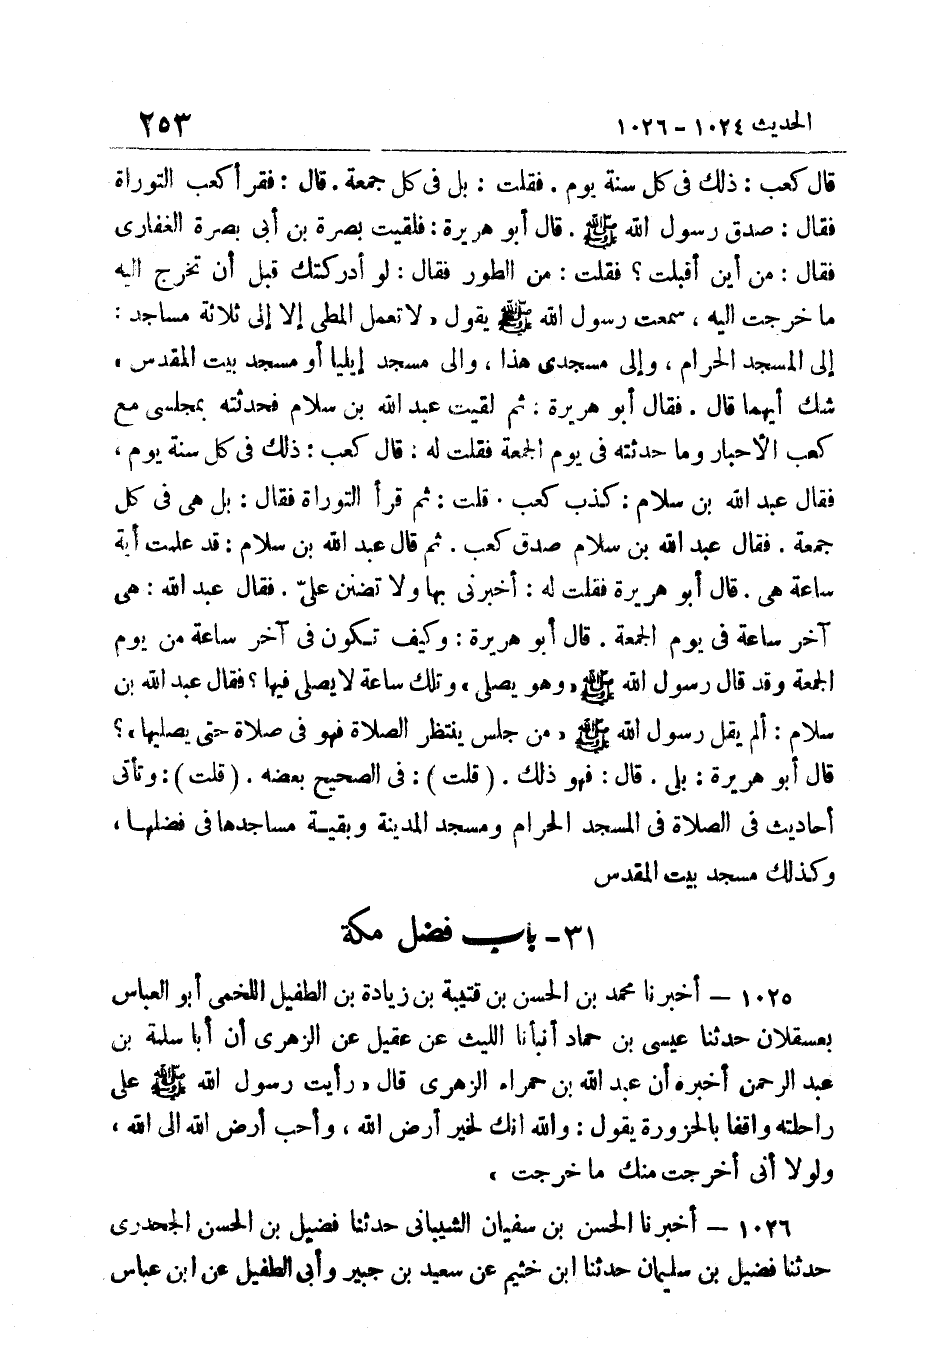 الحديث ١٠٢٤ - ١٠٢٦ ٢٥٣
قال كعب : ذلك فى كل سنة يوم . فقلت : بل فى كل جمعة . قال : فقرأ كعب التوراة
فقال : صدق رسول الله ﷺ . قال أبو هريرة : فلقيت بصرة بن أبى بصرة الغفارى
فقال : من أين أقبلت ؟ فقلت : من الطور فقال : لو أدركتك قبل أن تخرج اليه
ما خرجت اليه ، سمعت رسول الله ﷺ يقول « لا تعمل المطى إلا إلى ثلاثة مساجد :
إلى المسجد الحرام ، وإلى مسجدى هذا ، والى مسجد إيليا أو مسجد بيت المقدس »
شك أيهما قال . فقال أبو هريرة : ثم لقيت عبد الله بن سلام فحدثته بمجلسى مع
كعب الأحبار وما حدثته فى يوم الجمعة فقلت له : قال كعب : ذلك فى كل سنة يوم ،
فقال عبد الله بن سلام : كذب كعب . قلت : ثم قرأ التوراة فقال : بل هى فى كل
جمعة . فقال عبد الله بن سلام صدق كعب . ثم قال عبد الله بن سلام : قد علمت أية
ساعة هى . قال أبو هريرة فقلت له : أخبرنى بها ولا تضنن علىّ . فقال عبد الله : هى
آخر ساعة فى يوم الجمعة . قال أبو هريرة : وكيف تكون فى آخر ساعة من يوم
الجمعة وقد قال رسول الله ﷺ « وهو يصلى » وتلك ساعة لا يصلى فيها ؟ فقال عبد الله بن
سلام : ألم يقل رسول الله ﷺ « من جلس ينتظر الصلاة فهو فى صلاة حتى يصليها » ؟
قال أبو هريرة : بلى . قال : فهو ذلك . ( قلت ) : فى الصحيح بعضه . ( قلت ) : وتأتى
أحاديث فى الصلاة فى المسجد الحرام ومسجد المدينة وبقية مساجدها فى فضلها ،
وكذلك مسجد بيت المقدس
٣١ - باب فضل مكة
١٠٢٥ – أخبرنا محمد بن الحسن بن قتيبة بن زيادة بن الطفيل اللخمى أبو العباس
بعسقلان حدثنا عيسى بن حماد أنبأنا الليث عن عقيل عن الزهرى أن أبا سلمة بن
عبد الرحمن أخبره أن عبد الله بن حمراء الزهرى قال « رأيت رسول الله ﷺ على
راحلته واقفا بالحزورة يقول : والله انك لخير أرض الله ، وأحب أرض الله الى الله ،
ولولا أنى أخرجت منك ما خرجت »
١٠٢٦ – أخبرنا الحسن بن سفيان الشيبانى حدثنا فضيل بن الحسن الجحدرى
حدثنا فضيل بن سليمان حدثنا ابن خثيم عن سعيد بن جبير وأبى الطفيل عن ابن عباس